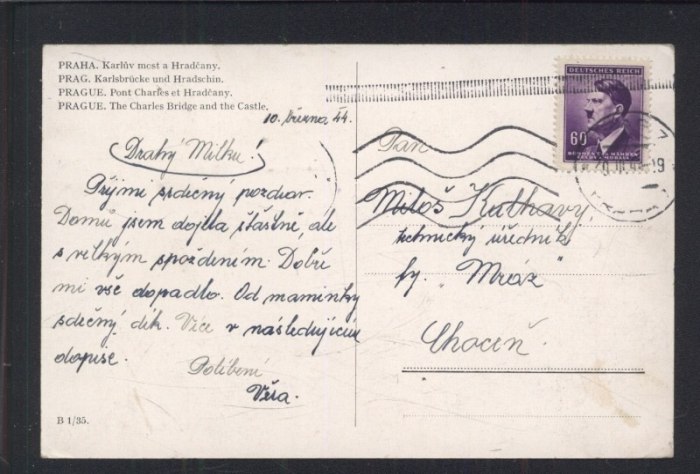 PRAHA. Karlův most a Hradčany.
PRAG. Karlsbrücke und Hradschin.
PRAGUE. Pont Charles et Hradčany.
PRAGUE. The Charles Bridge and the Castle.
10. března 44.
Drahý Milku!
Přijmi srdečný pozdrav.
Domů jsem dojela šťastně, ale
s velkým spožděním. Dobře
mi vše dopadlo. Od maminky
srdečný dík. Více v následujícím
dopise.
Políbení
Věra.
B 1/35.
DEUTSCHES REICH
60
BÖHMEN U. MÄHREN
ČECHY A MORAVA
Pan
Miloš Kulhavý,
technický úředník
fy. „Mráz"
Choceň.